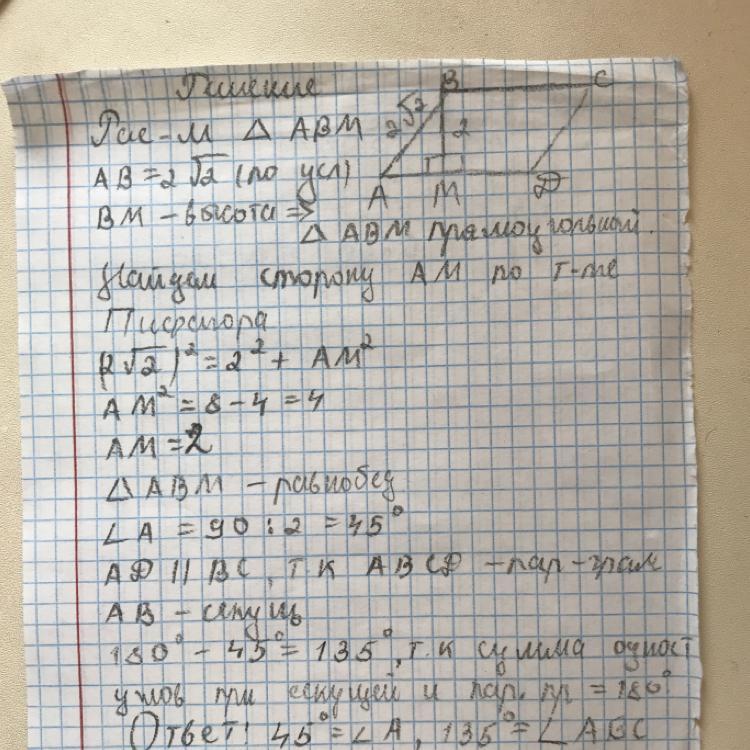 Решение
B C
Рас-м Δ ABM 2√2 2
AB = 2√2 (по усл)
A M D
BM – высота ⇒
Δ ABM прямоугольный.
Найдем сторону AM по т-ме
Пифагора
(2√2)² = 2² + AM²
AM² = 8 – 4 = 4
AM = 2
Δ ABM – равнобед
∠A = 90 : 2 = 45°
AD || BC, т.к ABCD – пар-грам
AB – секущ
180° – 45° = 135°, т.к сумма одност
углов при секущей и пар. пр = 180°
Ответ: 45° = ∠A, 135° = ∠ABC